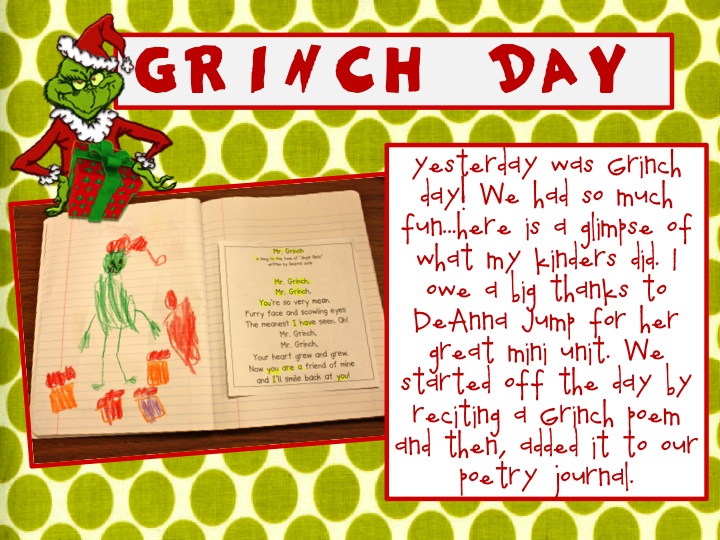 GRINCH DAY
Yesterday was Grinch
day! We had so much
fun...here is a glimpse of
what my kinders did. I
owe a big thanks to
DeAnna Jump for her
great mini unit. We
started off the day by
reciting a Grinch poem
and then, added it to our
poetry journal.
Mr. Grinch
A song to the tune of "Jingle Bells"
written by Deanna Jump
Mr. Grinch,
Mr. Grinch,
You're so very mean.
Furry face and scowling eyes
The meanest I have seen. Oh!
Mr. Grinch,
Mr. Grinch,
Your heart grew and grew.
Now you are a friend of mine
and I'll smile back at you!